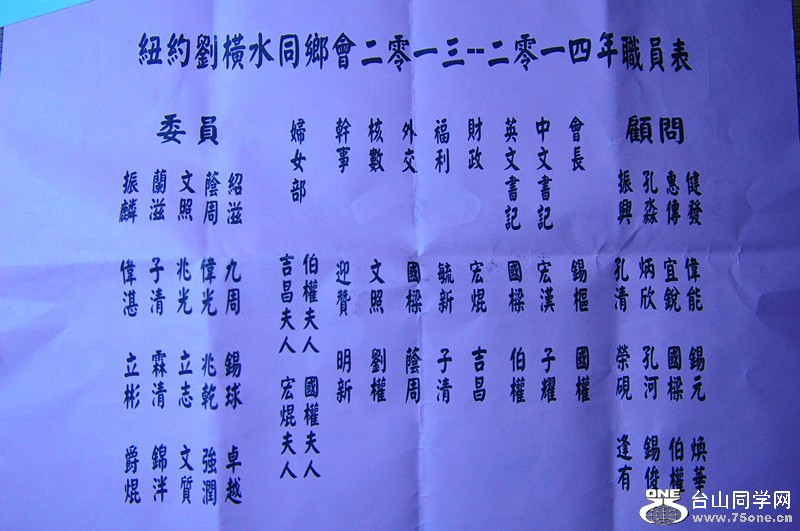 紐約劉橫水同鄉會二零一三--二零一四年職員表
顧問
健發 偉能 錫元 煥華
惠傳 宜銳 國樑 伯權
孔淼 炳欣 孔河 錫俊
振興 孔清 榮硯 逢有
會長 錫樞 國權
中文書記 宏漢 子耀
英文書記 國樑 伯權
財政 宏焜 吉昌
福利 毓新 子清
外交 國樑 蔭周
核數 文照 劉權
幹事 迎贊 明新
婦女部 伯權夫人 國權夫人
吉昌夫人 宏焜夫人
委員
紹滋 九周 錫球 卓越
蔭周 偉光 兆乾 強潤
文照 兆光 立志 文質
蘭滋 子清 霖清 錦泮
振麟 偉湛 立彬 爵焜
ONE
台山同学网
www.75one.cn